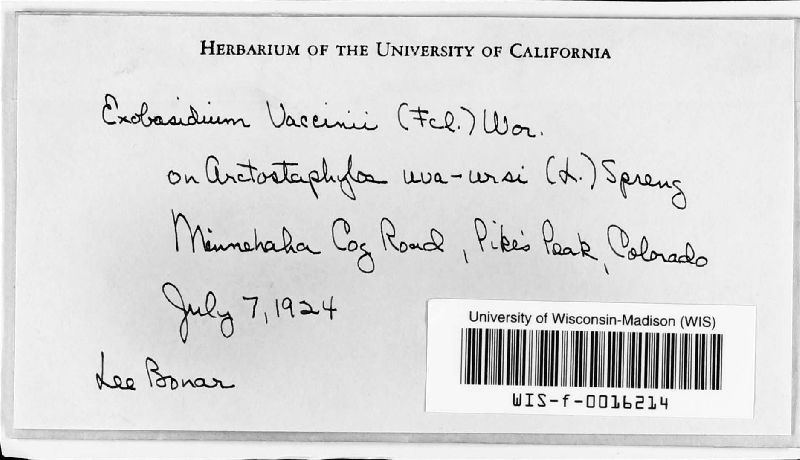 HERBARIUM OF THE UNIVERSITY OF CALIFORNIA
Exobasidium Vaccinii (Fcl.) Wor.
on Arctostaphylos uva-ursi (L.) Spreng
Minnehaha Cog Road, Pike's Peak, Colorado
July 7, 1924
Lee Bonar
University of Wisconsin-Madison (WIS)
WIS-f-0016214